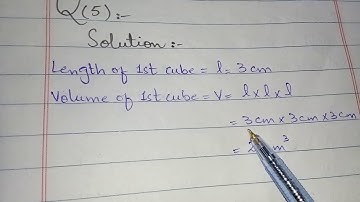 Q(5):-
Solution:-
Length of 1st cube = l = 3 cm
Volume of 1st cube = V = l x l x l
= 3 cm x 3 cm x 3 cm
= cm³